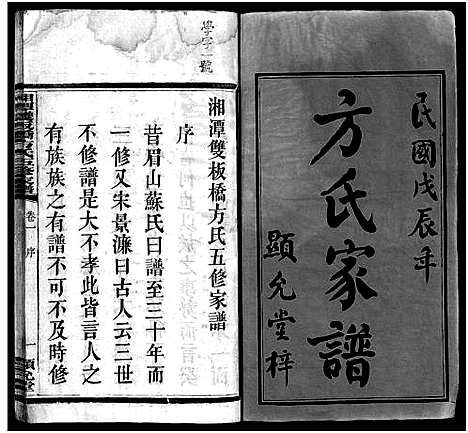 民國戊辰年
方氏家譜
顯允堂梓
學字一號
湘潭雙板橋方氏五修家譜
序
昔眉山蘇氏曰譜至三十年而
一修又朱景濂曰古人云三世
不修譜是大不孝此皆言人之
有族族之有譜不可不及時修
卷一 序
一 顯允堂